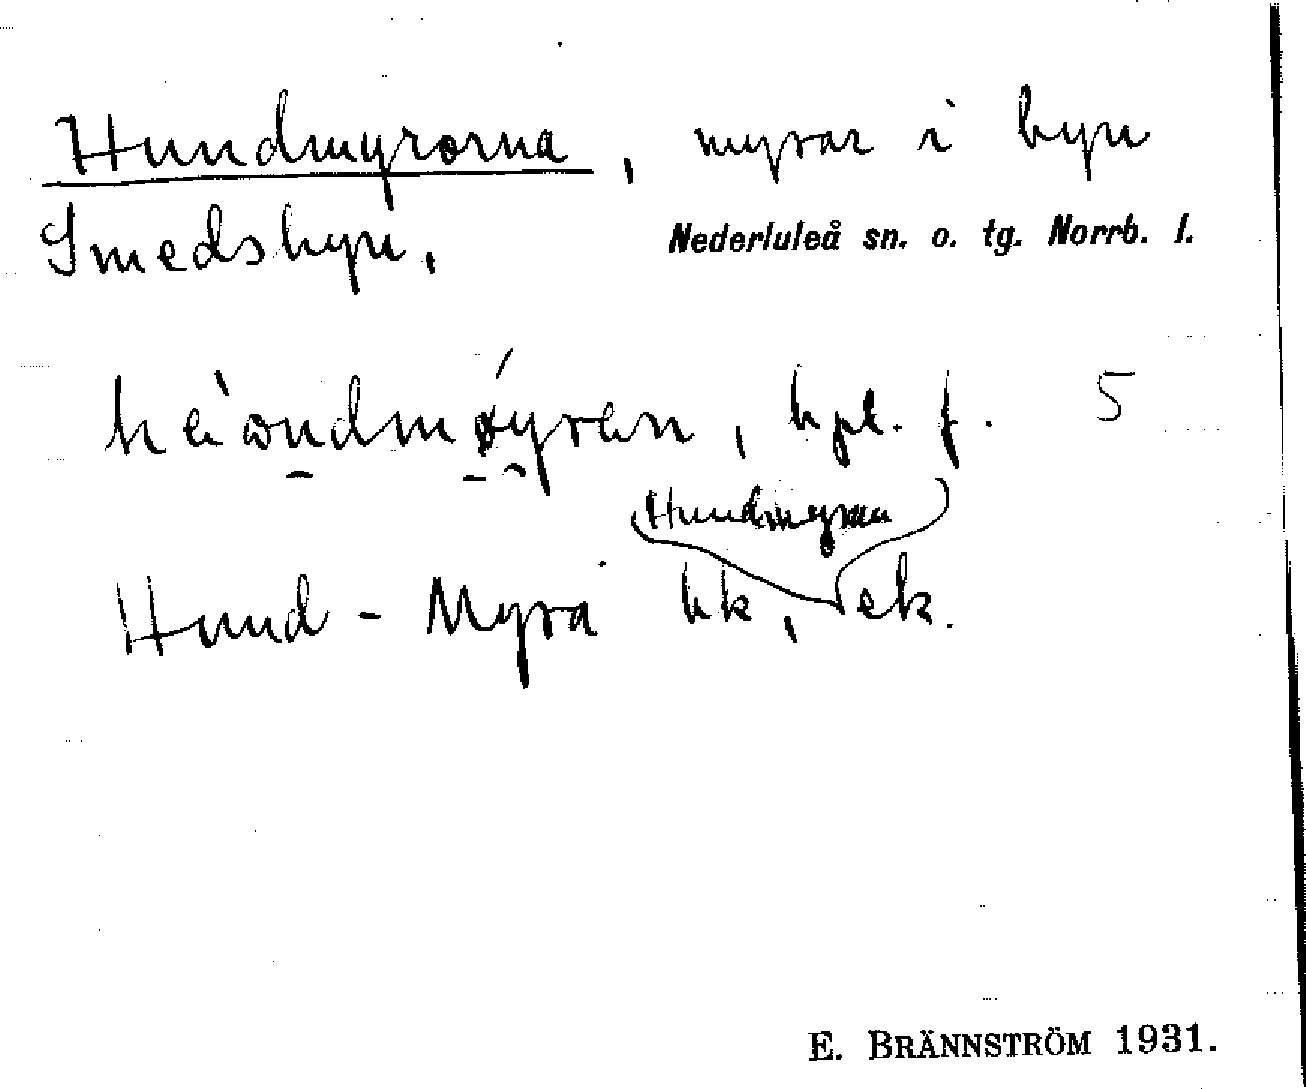 Hundmyrorna, myrar i byn
Smedsbyn.
Nederluleå sn. o. tg. Norrb. l.
bpl. f. 5
(Hundmyran)
Hund - Myra hk, ek.
E. BRÄNNSTRÖM 1931.